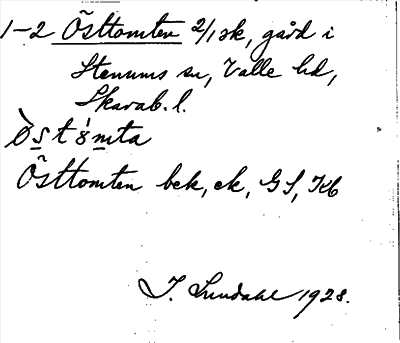 1-2 Östtomten 2/1 sk, gård i
Stenums sn, Valle hd,
Skarab. l.
Östtomten bek, ek, GS, Kb
I. Lundahl 1928.